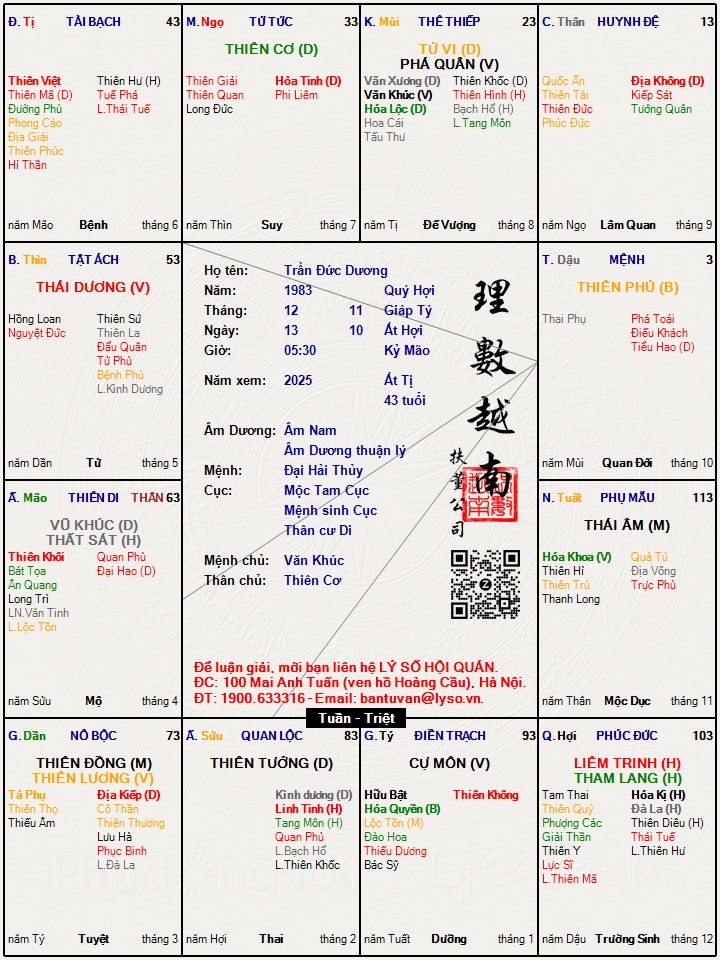 Đ. Tị TÀI BẠCH 43
Thiên Việt
Thiên Mã (D)
Đường Phù
Phong Cáo
Địa Giải
Thiên Phúc
Hỉ Thần
Thiên Hư (H)
Tuế Phá
L.Thái Tuế
năm Mão Bệnh tháng 6
M. Ngọ TỬ TỨC 33
THIÊN CƠ (D)
Thiên Giải
Thiên Quan
Long Đức
Hỏa Tinh (D)
Phi Liêm
năm Thìn Suy tháng 7
K. Mùi THÊ THIẾP 23
TỬ VI (D)
PHÁ QUÂN (V)
Văn Xương (D)
Văn Khúc (V)
Hóa Lộc (D)
Hoa Cái
Tấu Thư
Thiên Khốc (D)
Thiên Hình (H)
Bạch Hổ (H)
L.Tang Môn
năm Tị Đế Vượng tháng 8
C. Thân HUYNH ĐỆ 13
Quốc Ấn
Thiên Tài
Thiên Đức
Phúc Đức
Địa Không (D)
Kiếp Sát
Tướng Quân
năm Ngọ Lâm Quan tháng 9
B. Thìn TẬT ÁCH 53
THÁI DƯƠNG (V)
Hồng Loan
Nguyệt Đức
Thiên Sứ
Thiên La
Đẩu Quân
Tử Phù
Bệnh Phù
L.Kình Dương
năm Dần Tử tháng 5
Họ tên: Trần Đức Dương
Năm: 1983 Quý Hợi
Tháng: 12 11 Giáp Tý
Ngày: 13 10 Ất Hợi
Giờ: 05:30 Kỷ Mão
Năm xem: 2025 Ất Tị
43 tuổi
Âm Dương: Âm Nam
Âm Dương thuận lý
Mệnh: Đại Hải Thủy
Cục: Mộc Tam Cục
Mệnh sinh Cục
Thân cư Di
Mệnh chủ: Văn Khúc
Thân chủ: Thiên Cơ
理數越南
扶董公司
Để luận giải, mời bạn liên hệ LÝ SỐ HỘI QUÁN.
ĐC: 100 Mai Anh Tuấn (ven hồ Hoàng Cầu), Hà Nội.
ĐT: 1900.633316 - Email: bantuvan@lyso.vn.
T. Dậu MỆNH 3
THIÊN PHỦ (B)
Thai Phụ
Phá Toái
Điếu Khách
Tiểu Hao (D)
năm Mùi Quan Đới tháng 10
Ấ. Mão THIÊN DI THÂN 63
VŨ KHÚC (D)
THẤT SÁT (H)
Thiên Khôi
Bát Tọa
Ân Quang
Long Trì
LN.Văn Tinh
L.Lộc Tồn
Quan Phù
Đại Hao (D)
năm Sửu Mộ tháng 4
N. Tuất PHỤ MẪU 113
THÁI ÂM (M)
Hóa Khoa (V)
Thiên Hỉ
Thiên Trù
Thanh Long
Quả Tú
Địa Võng
Trực Phù
năm Thân Mộc Dục tháng 11
Tuần - Triệt
G. Dần NÔ BỘC 73
THIÊN ĐỒNG (M)
THIÊN LƯƠNG (V)
Tả Phụ
Thiên Thọ
Thiếu Âm
Địa Kiếp (D)
Cô Thần
Thiên Thương
Lưu Hà
Phục Binh
L.Đà La
năm Tý Tuyệt tháng 3
Ấ. Sửu QUAN LỘC 83
THIÊN TƯỚNG (D)
Kình dương (D)
Linh Tinh (H)
Tang Môn (H)
Quan Phủ
L.Bạch Hổ
L.Thiên Khốc
năm Hợi Thai tháng 2
G. Tý ĐIỀN TRẠCH 93
CỰ MÔN (V)
Hữu Bật
Hóa Quyền (B)
Lộc Tồn (M)
Đào Hoa
Thiếu Dương
Bác Sỹ
Thiên Không
năm Tuất Dưỡng tháng 1
Q. Hợi PHÚC ĐỨC 103
LIÊM TRINH (H)
THAM LANG (H)
Tam Thai
Thiên Quý
Phượng Các
Giải Thần
Thiên Y
Lực Sĩ
L.Thiên Mã
Hóa Kị (H)
Đà La (H)
Thiên Diêu (H)
Thái Tuế
L.Thiên Hư
năm Dậu Trường Sinh tháng 12